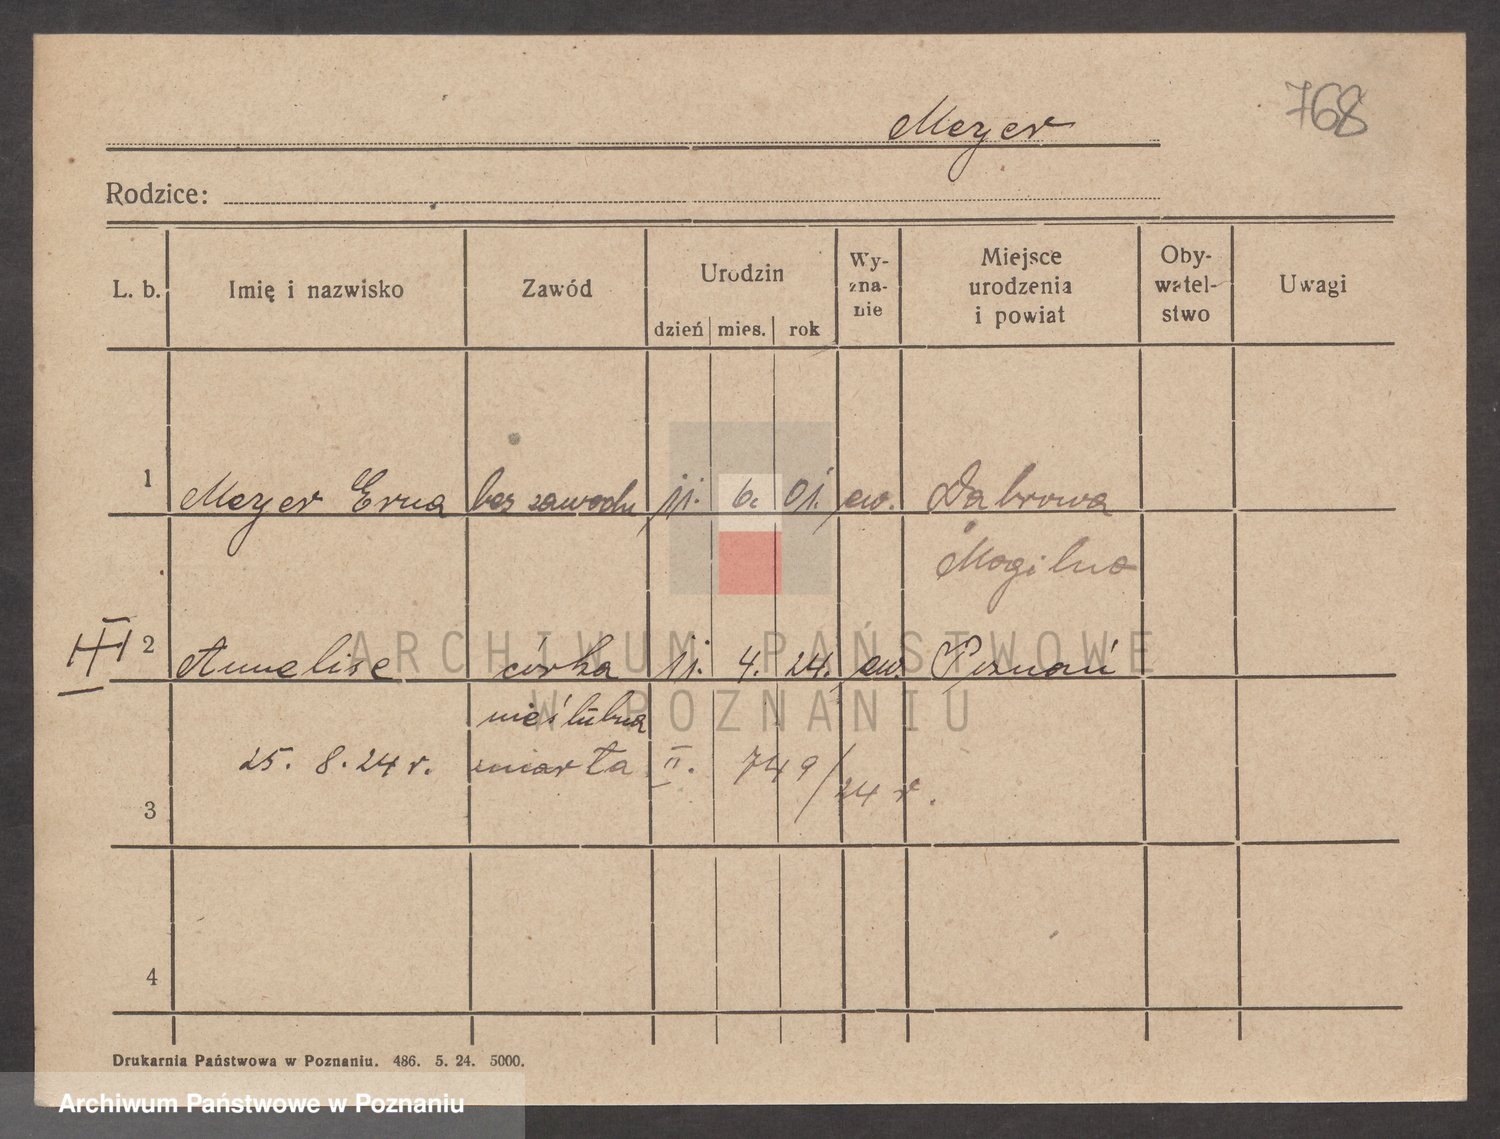 768
Meyer
Rodzice:
L. b. Imię i nazwisko Zawód Urodzin dzień mies. rok Wy-zna-nie Miejsce urodzenia i powiat Oby-watel-stwo Uwagi
1 Meyer Erna bez zawodu 11. 6. 01. ew. Dabrowa
Mogilno
III 2 Annelise córka 11. 4. 24. ew. Poznań
nieślubna
25. 8. 24 r. zmarła II. 749/24 r.
3
4
Drukarnia Państwowa w Poznaniu. 486. 5. 24. 5000.
ARCHIWUM PAŃSTWOWE
W POZNANIU
Archiwum Państwowe w Poznaniu